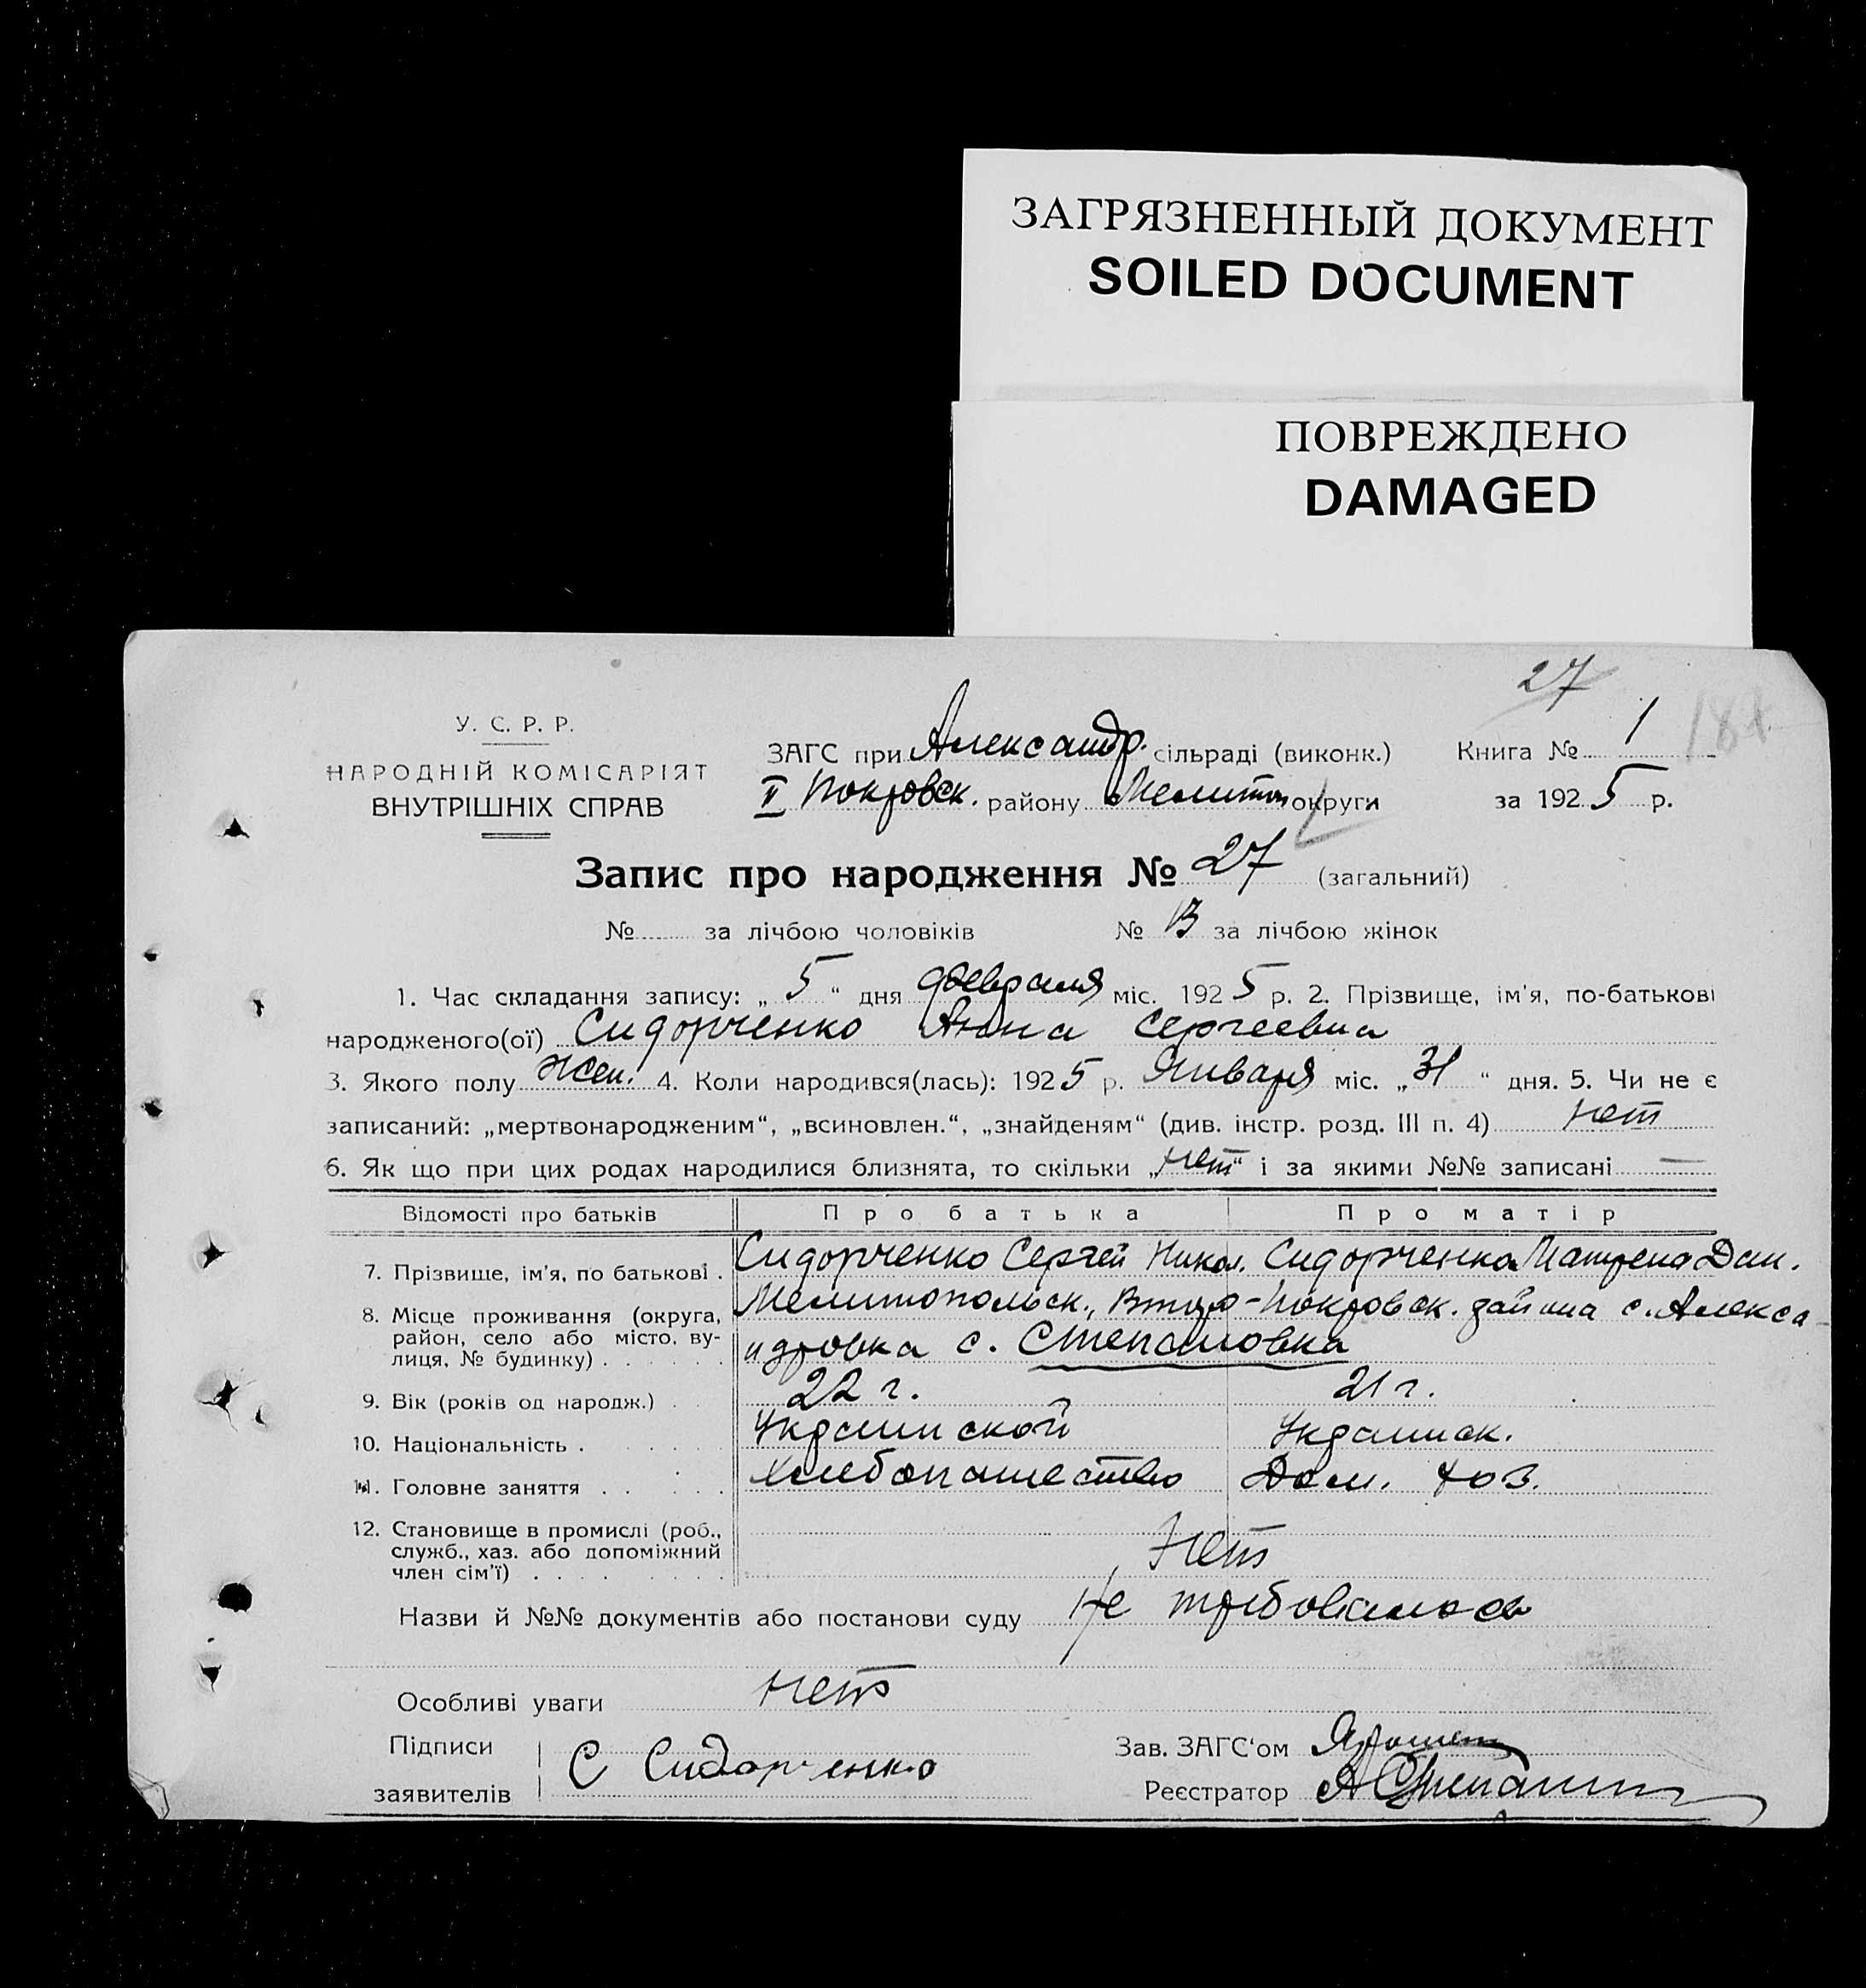 ЗАГРЯЗНЕННЫЙ ДОКУМЕНТ
SOILED DOCUMENT
ПОВРЕЖДЕНО
DAMAGED
27
У. С. Р. Р.
НАРОДНІЙ КОМІСАРІЯТ
ВНУТРІШНІХ СПРАВ
ЗАГС при Александр. сільраді (виконк.) Книга № 1
II Покровск. району Мелитоп округи за 1925 р.
Запис про народження № 27 (загальний)
№ за лічбою чоловіків № 13 за лічбою жінок
1. Час складання запису: „5“ дня февраля міс. 1925 р. 2. Прізвище, ім'я, по-батькові
народженого(ої) Сидорченко Анна Сергеевна
3. Якого полу Жен. 4. Коли народився(лась): 1925 р. Января міс. „31“ дня. 5. Чи не є
записаний: „мертвонародженим“, „всиновлен.“, „знайденям“ (див. інстр. розд. III п. 4) нет
6. Як що при цих родах народилися близнята, то скільки „нет“ і за якими №№ записані —
Відомості про батьків Про батька Про матір
7. Прізвище, ім'я, по батькові . Сидорченко Сергей Никол. Сидорченко Матрена Дан.
8. Місце проживання (округа, район, село або місто, вулиця, № будинку) . . . . . . Мелитопольск., Второ-Покровск. района с. Алекса-
ндровка с. Степановка
9. Вік (років од народж.) . 22 г. 21 г.
10. Національність . . . . Украинской Украинск.
11. Головне заняття . . . . . Хлебопашество Дом. хоз.
12. Становище в промислі (роб., служб., хаз. або допоміжний член сім'ї) . . . . . . . . Нет
Назви й №№ документів або постанови суду Не требовалось
Особливі уваги нет
Підписи заявителів С Сидорченко
Зав. ЗАГС'ом
Реєстратор